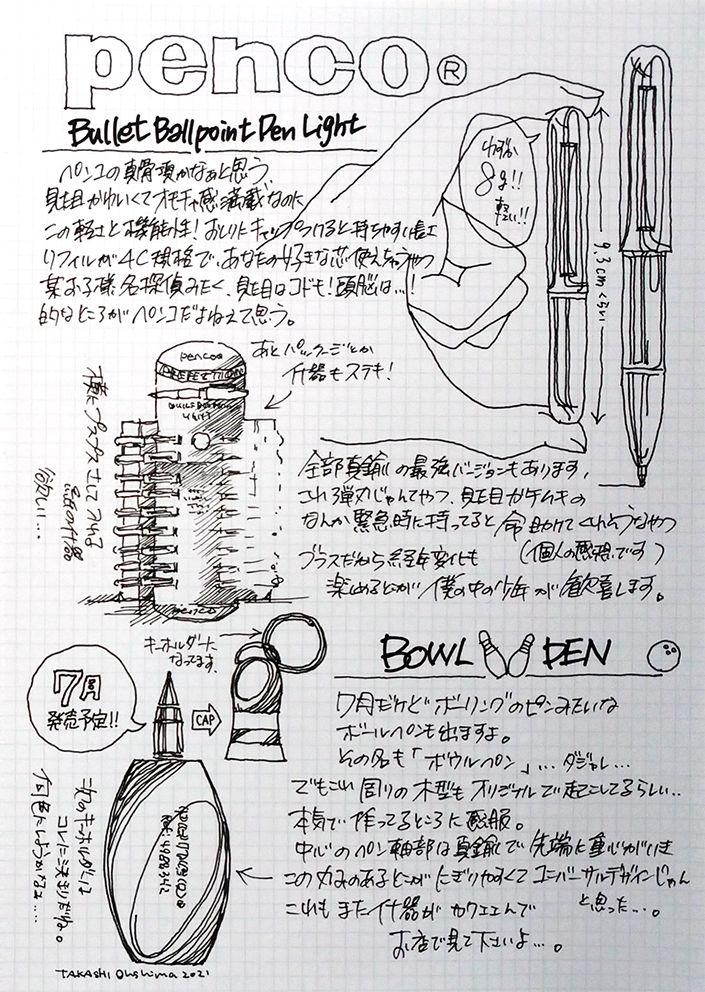 penco®
Bullet Ballpoint Pen Light
ペンコの真骨頂かなぁと思う、
見た目かわいくてオモチャ感満載なのに
この軽さと機能性!おしりにキャップつけると持ちやすい長さ
リフィルが4C規格で、あなたの好きな芯使えちゃうやつ
某お子様名探偵みたく、見た目はコドモ!頭脳は…!
的なところがペンコだよねえて思う。
わずか
8g!!
軽い!!
9.3cmくらい
あとパッケージとか
什器もステキ!
penco
PREFECTION
BULLET BALLPOINT
LIGHT
penco
横にプスプスさして
什器
欲しい…
全部真鍮の最強バージョンもあります、
これ弾丸じゃんてやつ、見た目がイカツめの
なんか緊急時に持ってると命助けてくれそうなやつ
(個人の感想です)
ブラスだから経年変化も
楽しめるとこが僕の中の少年が歓喜します。
キーホルダーに
なってます。
CAP
7月
発売予定!!
BOWL PEN
7月だけどボーリングのピンみたいな
ボールペンも出ますよ。
その名も「ボウルペン」…ダジャレ…
でもこれ周りの木型もオリジナルで起こしてるらしい..
本気で作ってるところに感服。
中心のペン軸部は真鍮で先端に重心がいき
この丸みのあるとこがにぎりやすくてユニバーサルデザインじゃん
と思った…。
これもまた什器がカワエエんで
お店で見て下さいよ…。
次のキーホルダーは
コレに決まりだね。
何色にしようかなぁ….
TAKASHI Ohshima 2021